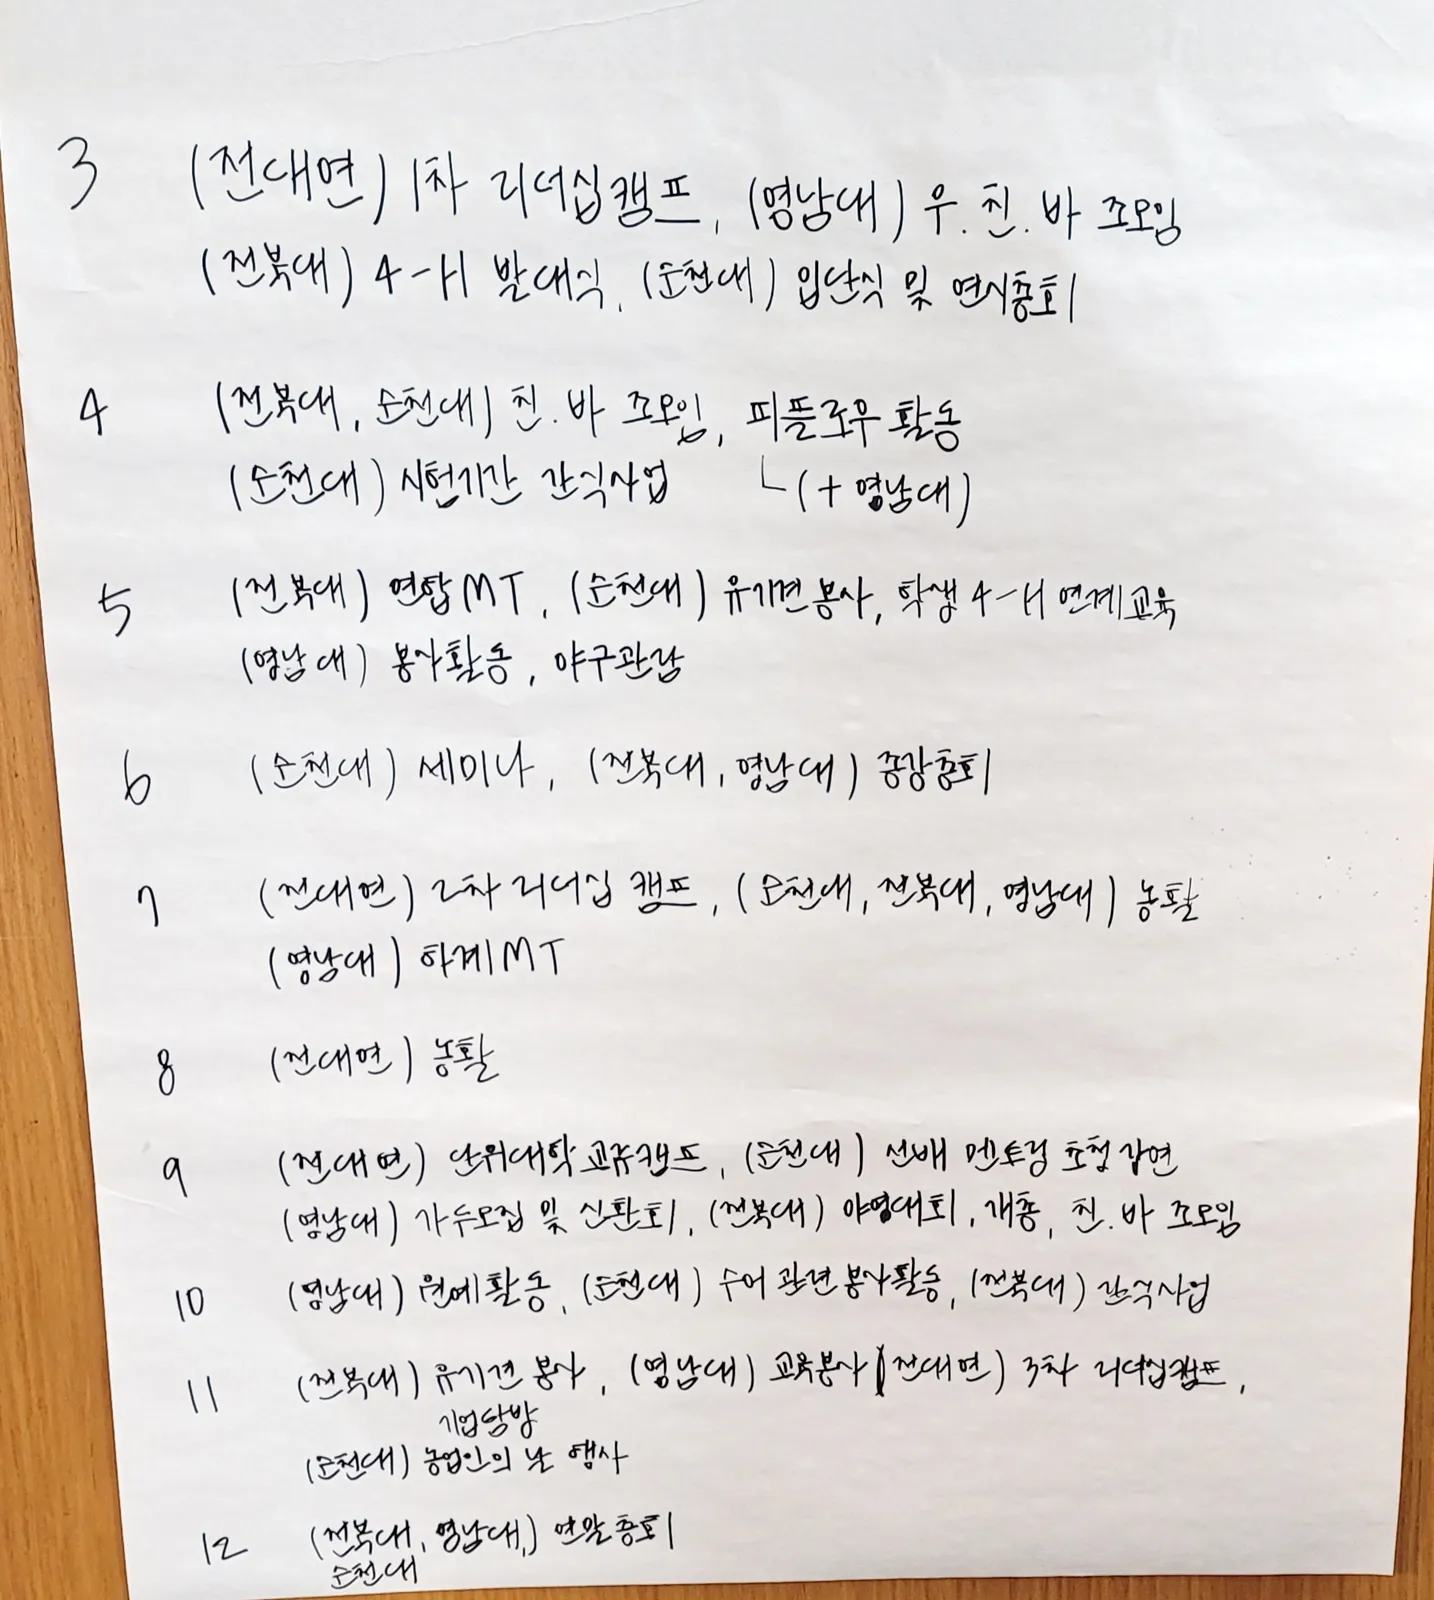 3 (전대연) 1차 리더십캠프, (영남대) 우.친.바 조모임
(전북대) 4-H 발대식, (순천대) 입단식 및 연시총회
4 (전북대, 순천대) 친.바 조모임, 피플로우 활동
(순천대) 시험기간 간식사업 (+영남대)
5 (전북대) 연합MT, (순천대) 유기견봉사, 학생4-H 연계교육
(영남대) 봉사활동, 야구관람
6 (순천대) 세미나, (전북대, 영남대) 종강총회
7 (전대연) 2차 리더십 캠프, (순천대, 전북대, 영남대) 농활
(영남대) 하계MT
8 (전대연) 농활
9 (전대연) 단위대학교류캠프, (순천대) 선배 멘토링 초청강연
(영남대) 가두모집 및 신환회, (전북대) 야영대회, 개총, 친.바 조모임
10 (영남대) 원예활동, (순천대) 수어 관련봉사활동, (전북대) 간식사업
11 (전북대) 유기견 봉사, (영남대) 교육봉사 (전대연) 3차 리더십캠프,
기업탐방
(순천대) 농업인의 날 행사
12 (전북대, 영남대,) 연말총회
순천대